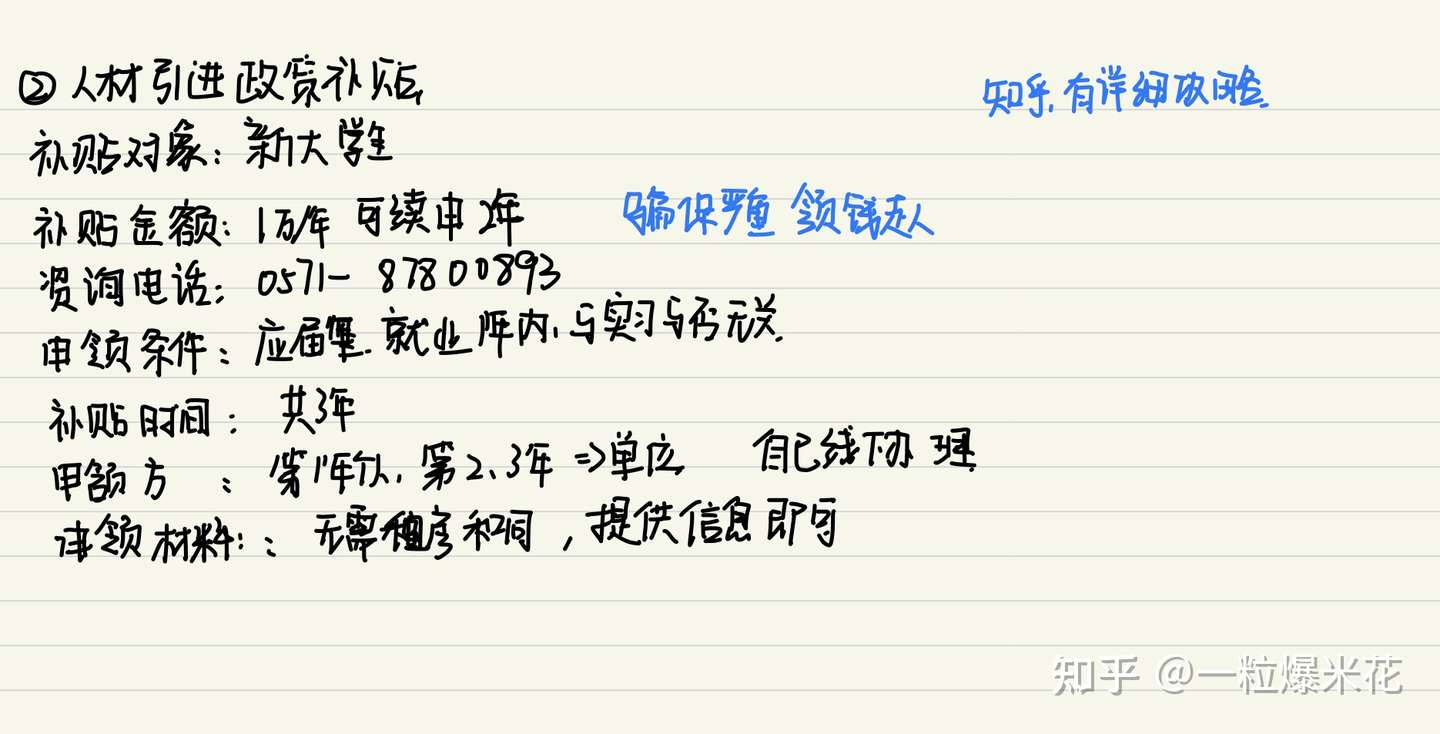 ② 人材引进政策补贴
知乎有详细攻略
补贴对象：新大学生
补贴金额：1万/年 可续申2年
领钱走人
资询电话：0571-87800893
申领条件：应届 就业1年内，与实习与否无关
补贴时间：共3年
申领方：第1年个人，第2、3年=>单位 自己线下办理
申领材料：：无需租房合同，提供信息即可
知乎 @一粒爆米花